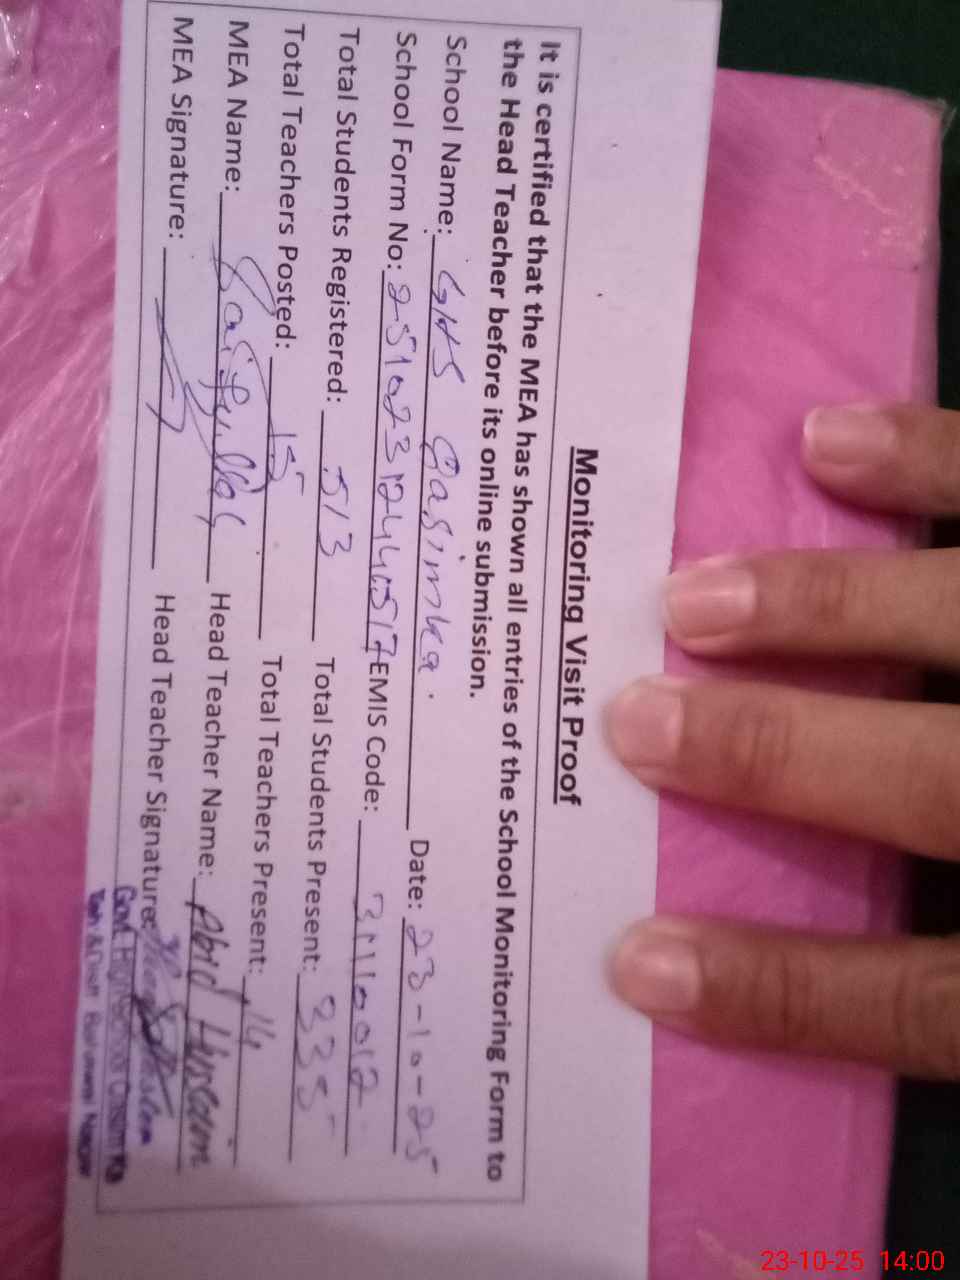 Monitoring Visit Proof
It is certified that the MEA has shown all entries of the School Monitoring Form to
the Head Teacher before its online submission.
School Name: GHS Qasimka. Date: 23-10-25
School Form No: EMIS Code: 31110012
Total Students Registered: 513 Total Students Present: 335
Total Teachers Posted: 15 Total Teachers Present: 14
MEA Name: Saifullah Head Teacher Name: Abid Hussain
MEA Signature: Head Teacher Signature:
Govt. High School
23-10-25 14:00